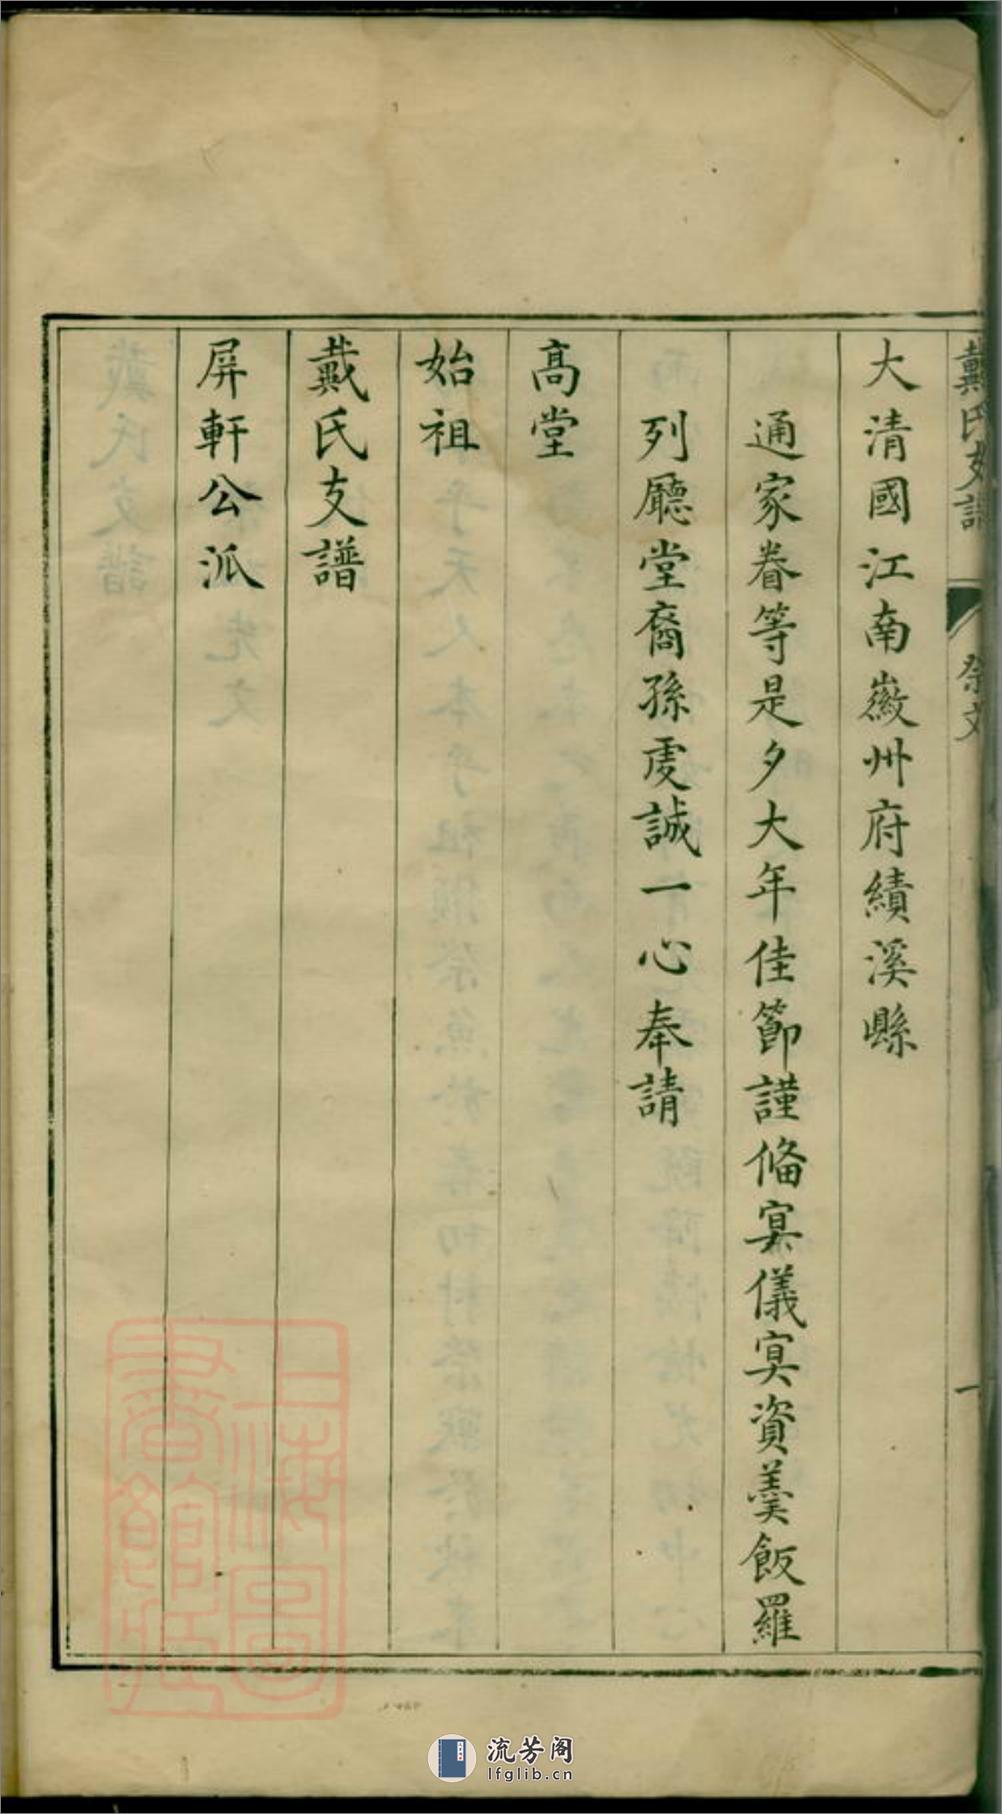 戴氏支譜
祭文
一
大清國江南徽州府績溪縣
通家眷等是夕大年佳節謹俻㝠儀㝠資羹飯羅
列廳堂裔孫虔誠一心奉請
高堂
始祖
戴氏支譜
屏軒公派
上海圖書館藏
流芳阁
lfglib.cn